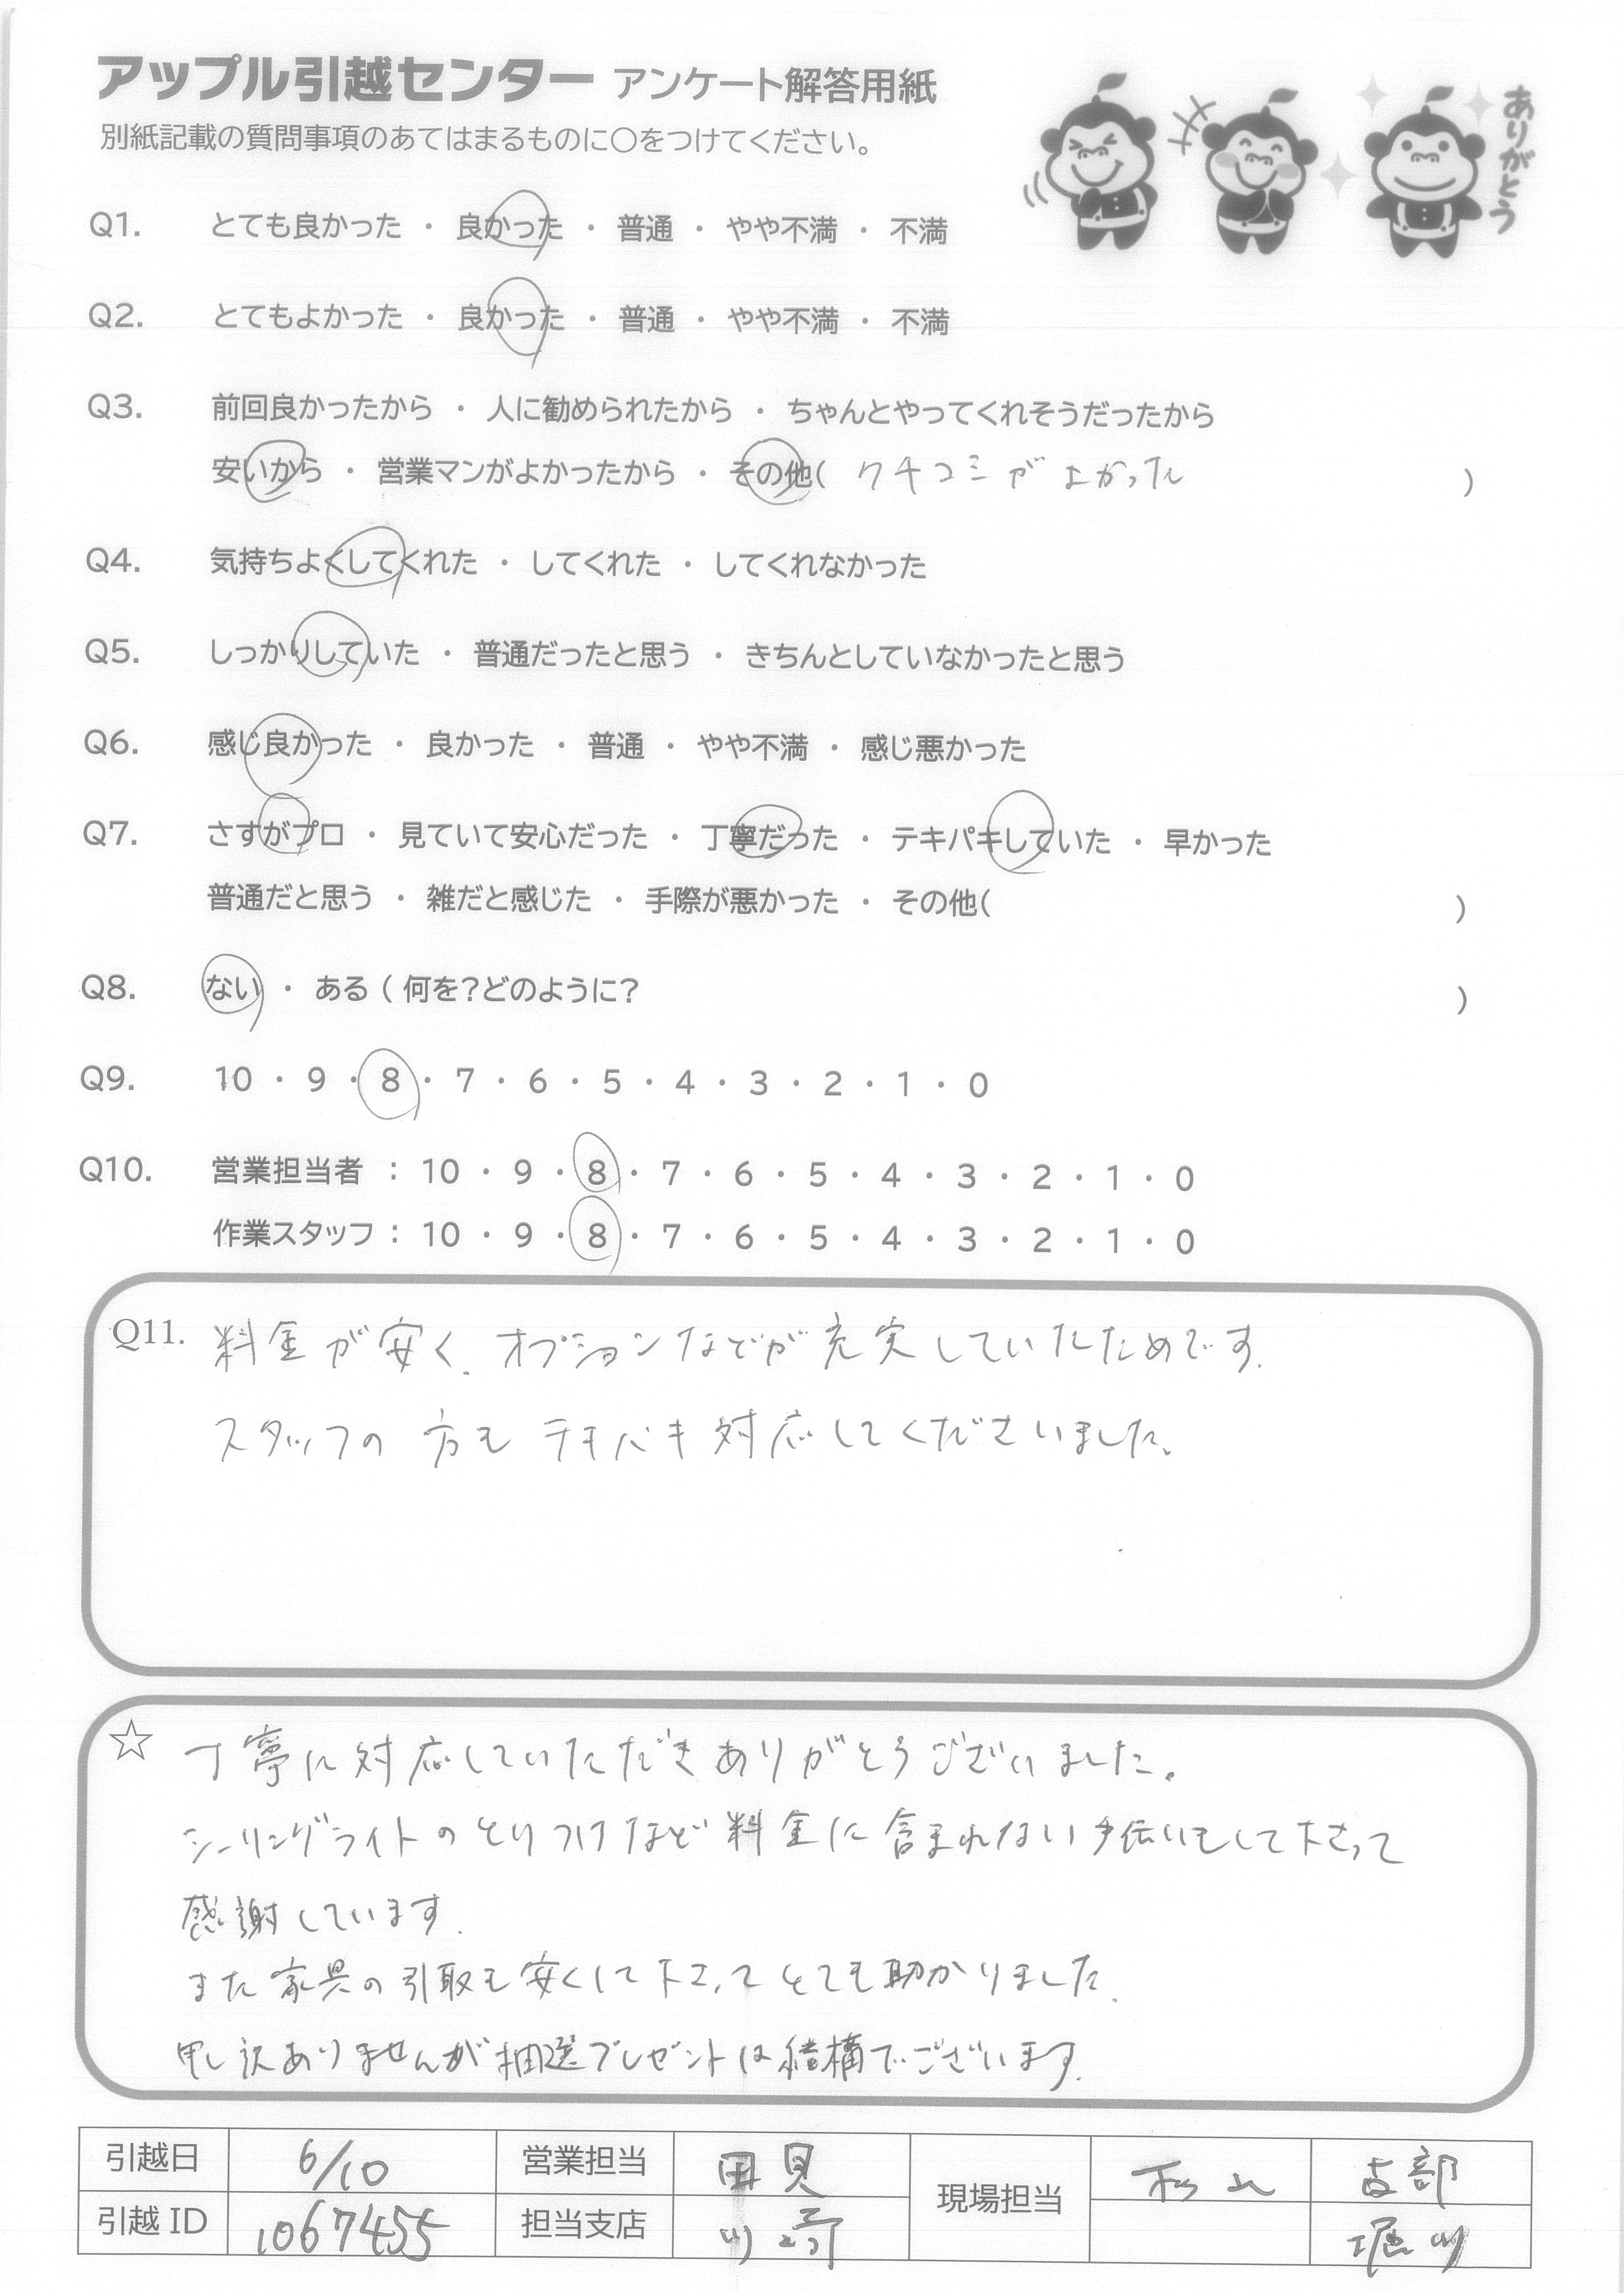 アップル引越センター アンケート解答用紙
ありがとう
別紙記載の質問事項のあてはまるものに○をつけてください。
Q1. とても良かった ・ 良かった ・ 普通 ・ やや不満 ・ 不満
Q2. とてもよかった ・ 良かった ・ 普通 ・ やや不満 ・ 不満
Q3. 前回良かったから ・ 人に勧められたから ・ ちゃんとやってくれそうだったから
安いから ・ 営業マンがよかったから ・ その他( クチコミがよかった )
Q4. 気持ちよくしてくれた ・ してくれた ・ してくれなかった
Q5. しっかりしていた ・ 普通だったと思う ・ きちんとしていなかったと思う
Q6. 感じ良かった ・ 良かった ・ 普通 ・ やや不満 ・ 感じ悪かった
Q7. さすがプロ ・ 見ていて安心だった ・ 丁寧だった ・ テキパキしていた ・ 早かった
普通だと思う ・ 雑だと感じた ・ 手際が悪かった ・ その他( )
Q8. ない ・ ある ( 何を?どのように? )
Q9. 10 ・ 9 ・ 8 ・ 7 ・ 6 ・ 5 ・ 4 ・ 3 ・ 2 ・ 1 ・ 0
Q10. 営業担当者 : 10 ・ 9 ・ 8 ・ 7 ・ 6 ・ 5 ・ 4 ・ 3 ・ 2 ・ 1 ・ 0
作業スタッフ : 10 ・ 9 ・ 8 ・ 7 ・ 6 ・ 5 ・ 4 ・ 3 ・ 2 ・ 1 ・ 0
Q11. 料金が安く、オプションなどが充実していたためです。
スタッフの方もテキパキ対応してくださいました。
☆ 丁寧に対応していただきありがとうございました。
シーリングライトのとりつけなど料金に含まれない手伝いもして下さって
感謝しています。
また家具の引取も安くして下さってとても助かりました。
申し訳ありませんが抽選プレゼントは結構でございます。
引越日 6/10 営業担当 現場担当 松山
引越ID 1067455 担当支店 川崎 堀川